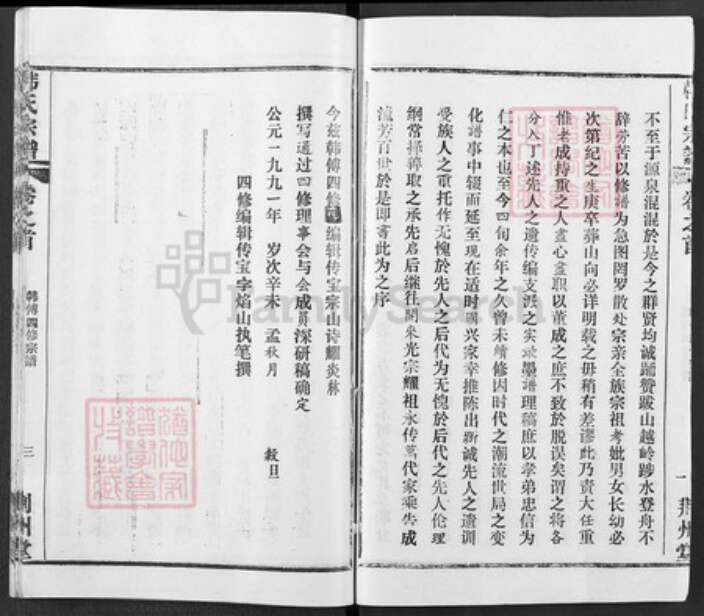 不至于源泉混混於是今之群贤均诚踊赞跋山越岭踄水登舟不
辞劳苦以修谱为急图罔罗散处宗亲全族宗祖考妣男女长幼必
次第纪之生庚卒葬山向必详明载之毋稍有差谬此乃责大任重
惟老成持重之人尽心尽职以董成之庶不致於脱误矣谓之将各
分人丁述先人之遗传编支派之实录墨谱理稿庶以孝弟忠信为
仁之本也至今四旬余年之久曾未续修因时代之潮流世局之变
化谱事中辍而延至现在适时国兴家幸推陈出新诚先人之遗训
受族人之重托作无愧於先人之后代为无愧於后代之先人伦理
纲常择善取之承先启后继往开来光宗耀祖永传万代家乘告成
流芳百世於是即书此为之序
今兹韩傅四修 编辑传宝宗山诗耀炎林
撰写通过四修理事会与会成员深研稿确定
公元一九九一年 岁次辛未 孟秋月 榖旦
四修编辑传宝字焰山执笔撰
韩氏宗谱
卷之首
韩傅四修宗谱
三
荆州堂
宗谱
卷之首
一
荆州堂
FamilySearch